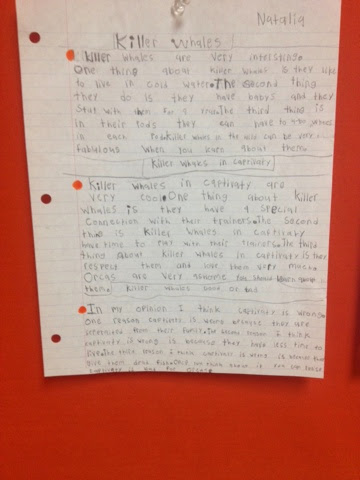 Natalia
Killer Whales
Killer whales are very interesting.
One thing about killer whales is they like
to live in cold water. The second thing
they do is they have babys and they
stay with them for a The third thing is
in their pods they can have to
in each Pod. Killer whales in the wild can be very
fabulous when you learn about them.
Killer Whales in captivaty
Killer whales in captivaty are
very cool. One thing about killer
whales is they have a special
connection with their trainers. The second
thing is killer whales in captivaty
have time to play with their trainers. The third
thing about killer whales in captivaty is they
respect them and love them very much.
Orcas are very You should learn more
them. Killer whales good or bad
In my opinion I think captivity is wrong.
One reason captivity is wrong because they are
seperated from their family. The second reason I think
captivity if wrong is because they have less time to
live. The third reason I think captivity is wrong is
give them dead fish. you think about it you can
captivity is bad for orcas.